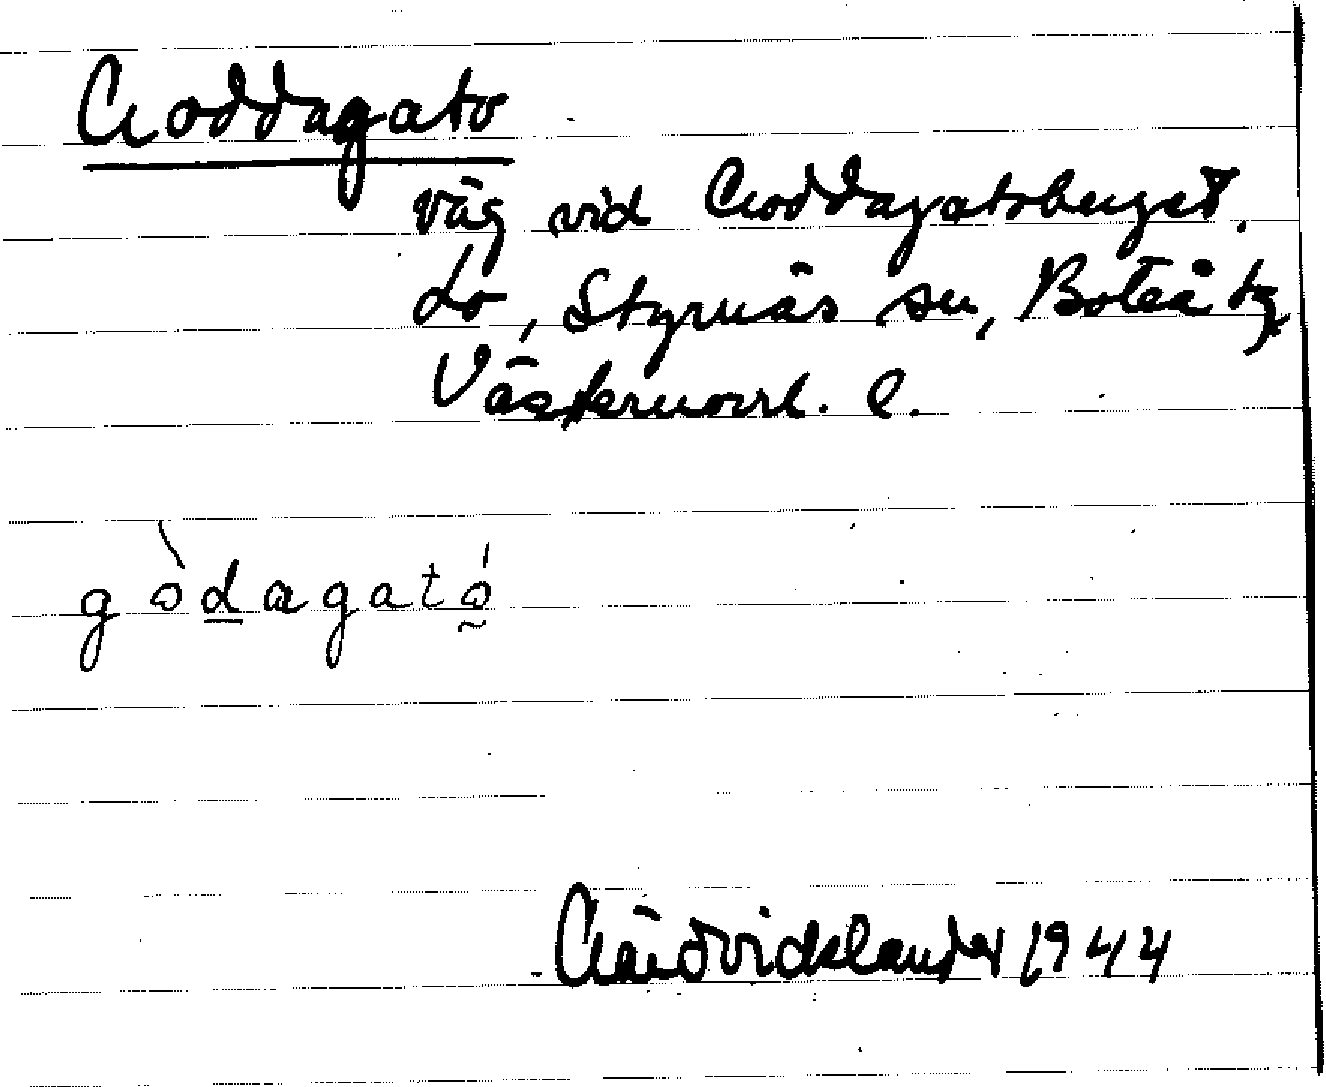 Goddagato
väg vid Goddagatoberget.
Lo, Styrnäs sn, Boteå tg
Västernorrl. l.
gòdagató
Gärdvidslander 1944